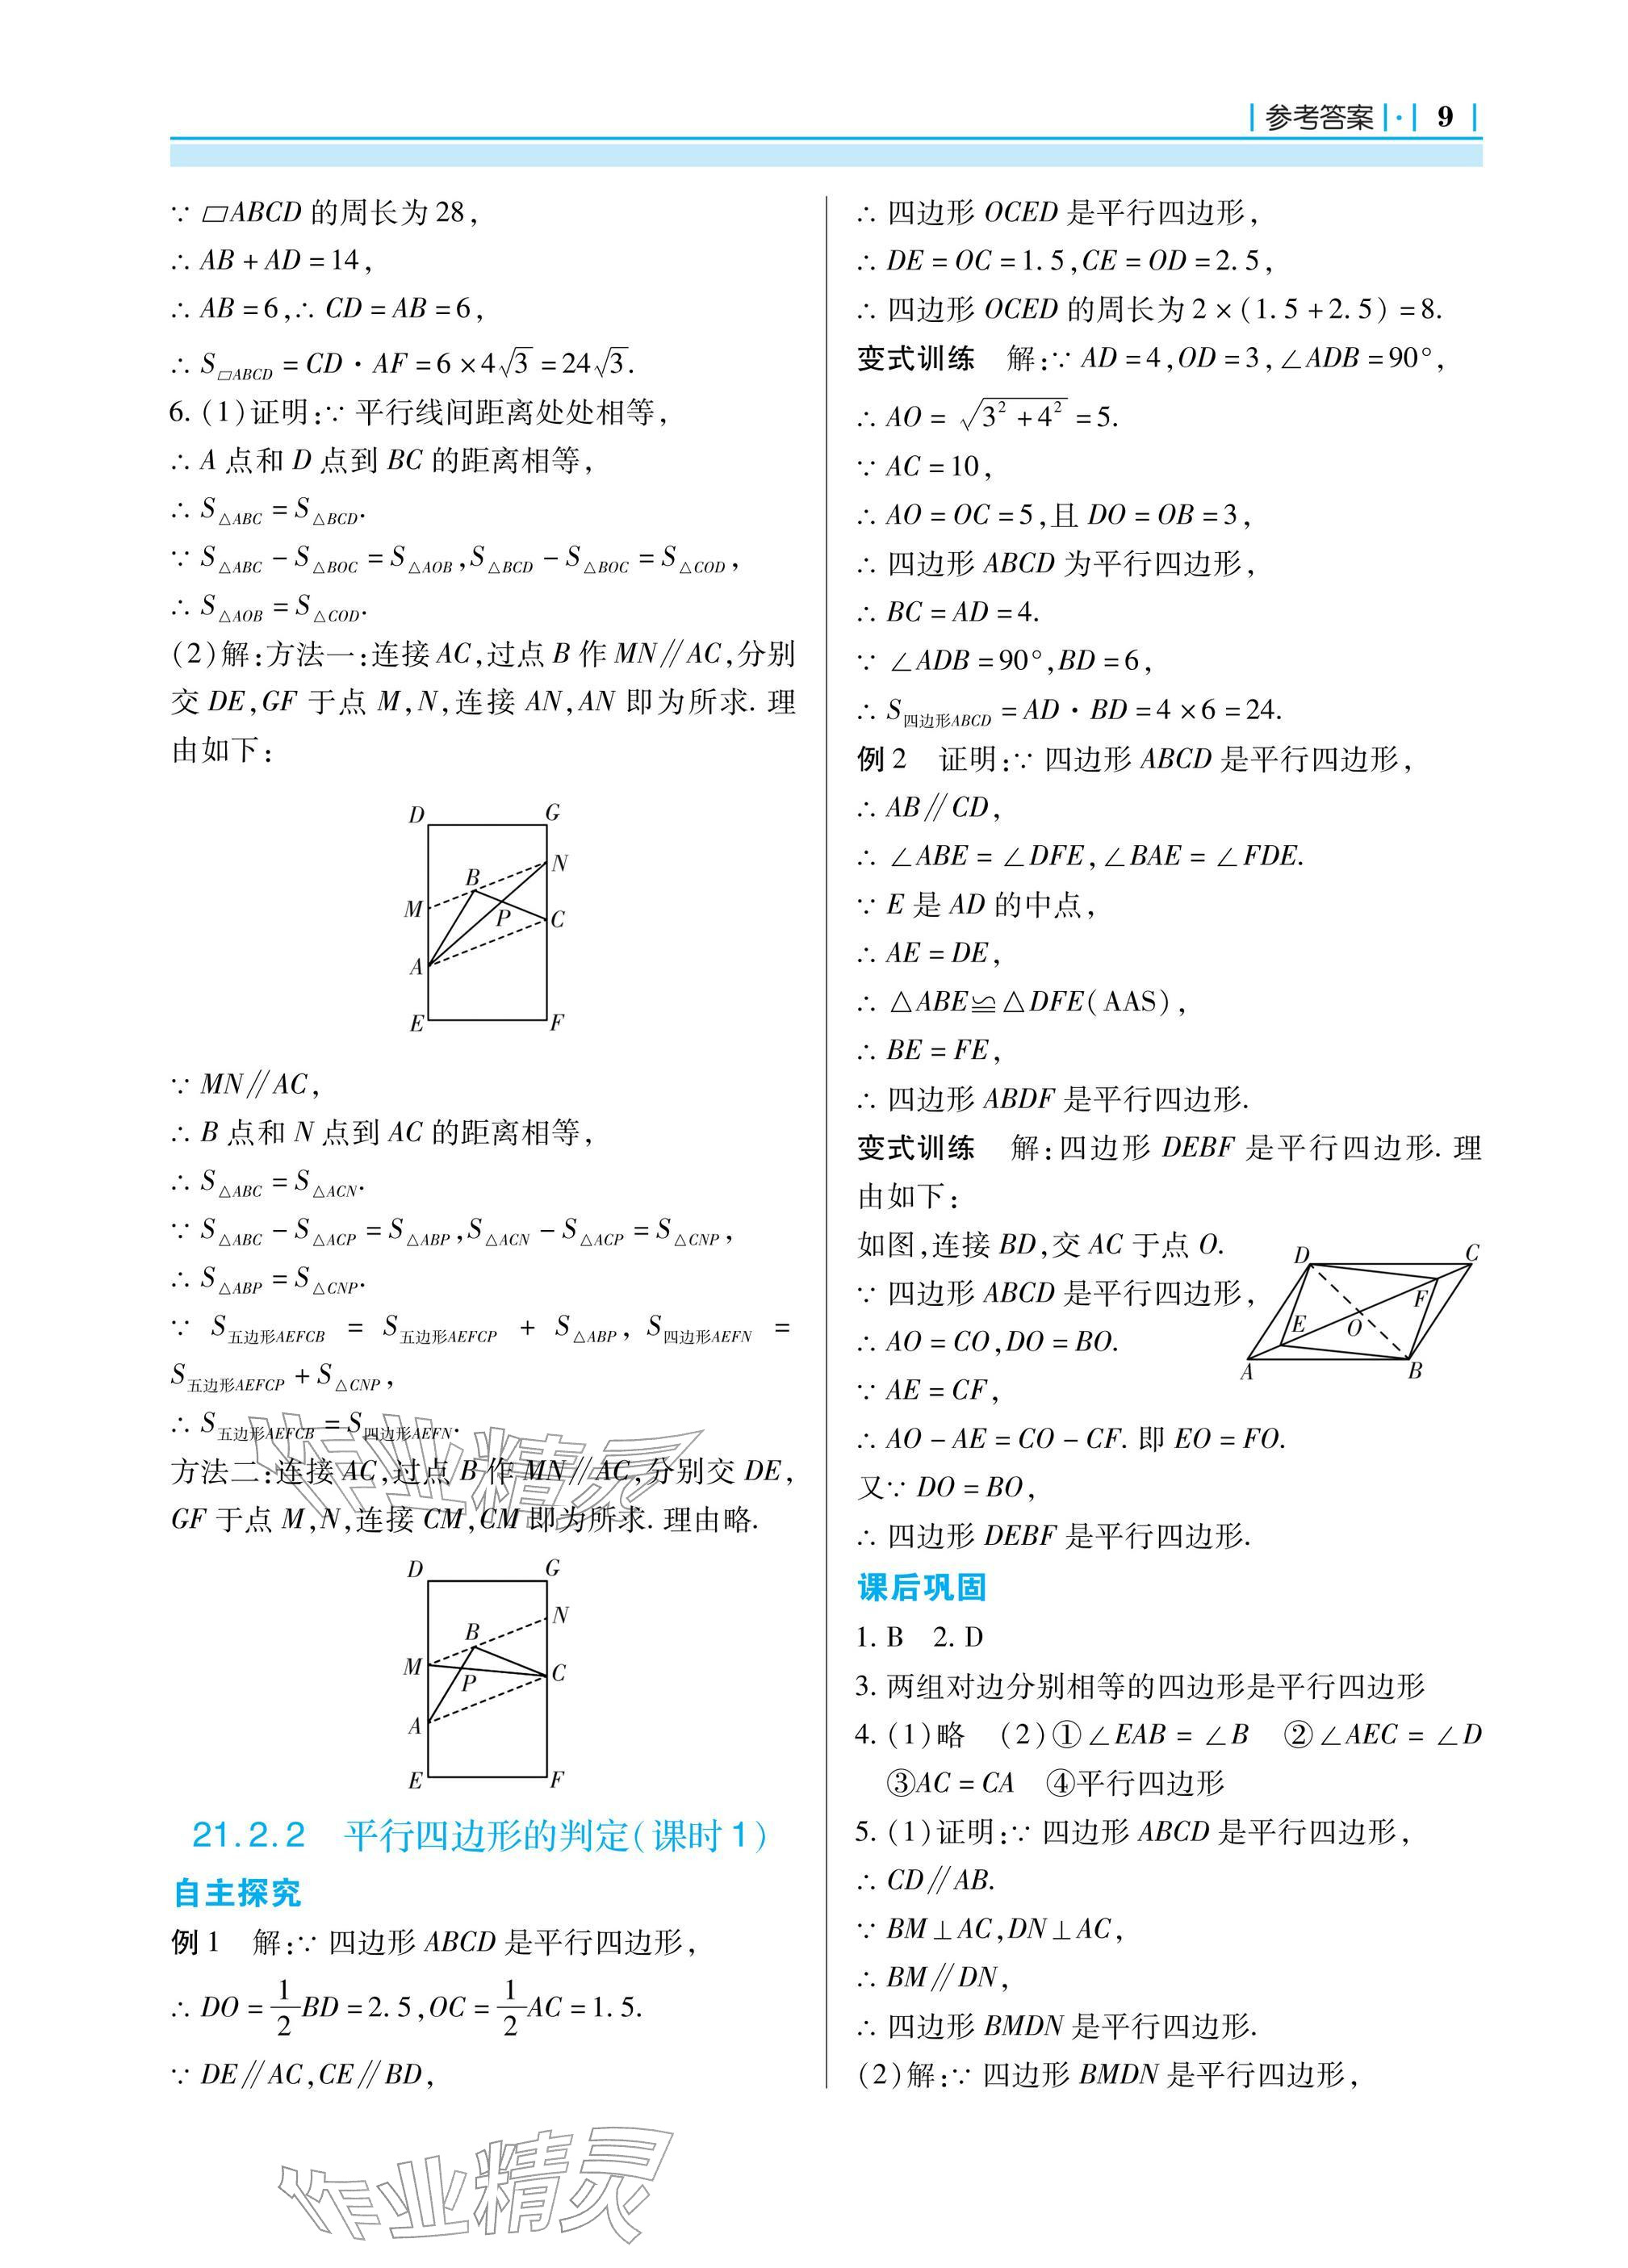 参考答案 · 9
∵ ▱ABCD 的周长为 28,
∴ AB + AD = 14,
∴ AB = 6,∴ CD = AB = 6,
∴ S▱ABCD = CD · AF = 6 × 4√3 = 24√3.
6. (1)证明:∵ 平行线间距离处处相等,
∴ A 点和 D 点到 BC 的距离相等,
∴ S△ABC = S△BCD.
∵ S△ABC − S△BOC = S△AOB,S△BCD − S△BOC = S△COD,
∴ S△AOB = S△COD.
(2)解:方法一:连接 AC,过点 B 作 MN∥AC,分别
交 DE,GF 于点 M,N,连接 AN,AN 即为所求. 理
由如下:
D G
N
B
M
P C
A
E F
∵ MN∥AC,
∴ B 点和 N 点到 AC 的距离相等,
∴ S△ABC = S△ACN.
∵ S△ABC − S△ACP = S△ABP,S△ACN − S△ACP = S△CNP,
∴ S△ABP = S△CNP.
∵ S五边形AEFCB = S五边形AEFCP + S△ABP, S四边形AEFN =
S五边形AEFCP + S△CNP,
∴ S五边形AEFCB = S四边形AEFN.
方法二:连接 AC,过点 B 作 MN∥AC,分别交 DE,
GF 于点 M,N,连接 CM,CM 即为所求. 理由略.
D G
N
B
M
P C
A
E F
21.2.2 平行四边形的判定(课时1)
自主探究
例 1 解:∵ 四边形 ABCD 是平行四边形,
∴ DO = 1/2 BD = 2.5,OC = 1/2 AC = 1.5.
∵ DE∥AC,CE∥BD,
∴ 四边形 OCED 是平行四边形,
∴ DE = OC = 1.5,CE = OD = 2.5,
∴ 四边形 OCED 的周长为 2 × (1.5 + 2.5) = 8.
变式训练 解:∵ AD = 4,OD = 3,∠ADB = 90°,
∴ AO = √(3² + 4²) = 5.
∵ AC = 10,
∴ AO = OC = 5,且 DO = OB = 3,
∴ 四边形 ABCD 为平行四边形,
∴ BC = AD = 4.
∵ ∠ADB = 90°,BD = 6,
∴ S四边形ABCD = AD · BD = 4 × 6 = 24.
例 2 证明:∵ 四边形 ABCD 是平行四边形,
∴ AB∥CD,
∴ ∠ABE = ∠DFE,∠BAE = ∠FDE.
∵ E 是 AD 的中点,
∴ AE = DE,
∴ △ABE≌△DFE(AAS),
∴ BE = FE,
∴ 四边形 ABDF 是平行四边形.
变式训练 解:四边形 DEBF 是平行四边形. 理
由如下:
如图,连接 BD,交 AC 于点 O.
∵ 四边形 ABCD 是平行四边形,
∴ AO = CO,DO = BO.
∵ AE = CF,
∴ AO − AE = CO − CF. 即 EO = FO.
又∵ DO = BO,
∴ 四边形 DEBF 是平行四边形.
D C
F
E O
A B
课后巩固
1. B 2. D
3. 两组对边分别相等的四边形是平行四边形
4. (1)略 (2)①∠EAB = ∠B ②∠AEC = ∠D
③AC = CA ④平行四边形
5. (1)证明:∵ 四边形 ABCD 是平行四边形,
∴ CD∥AB.
∵ BM⊥AC,DN⊥AC,
∴ BM∥DN,
∴ 四边形 BMDN 是平行四边形.
(2)解:∵ 四边形 BMDN 是平行四边形,
作业精灵
作业精灵